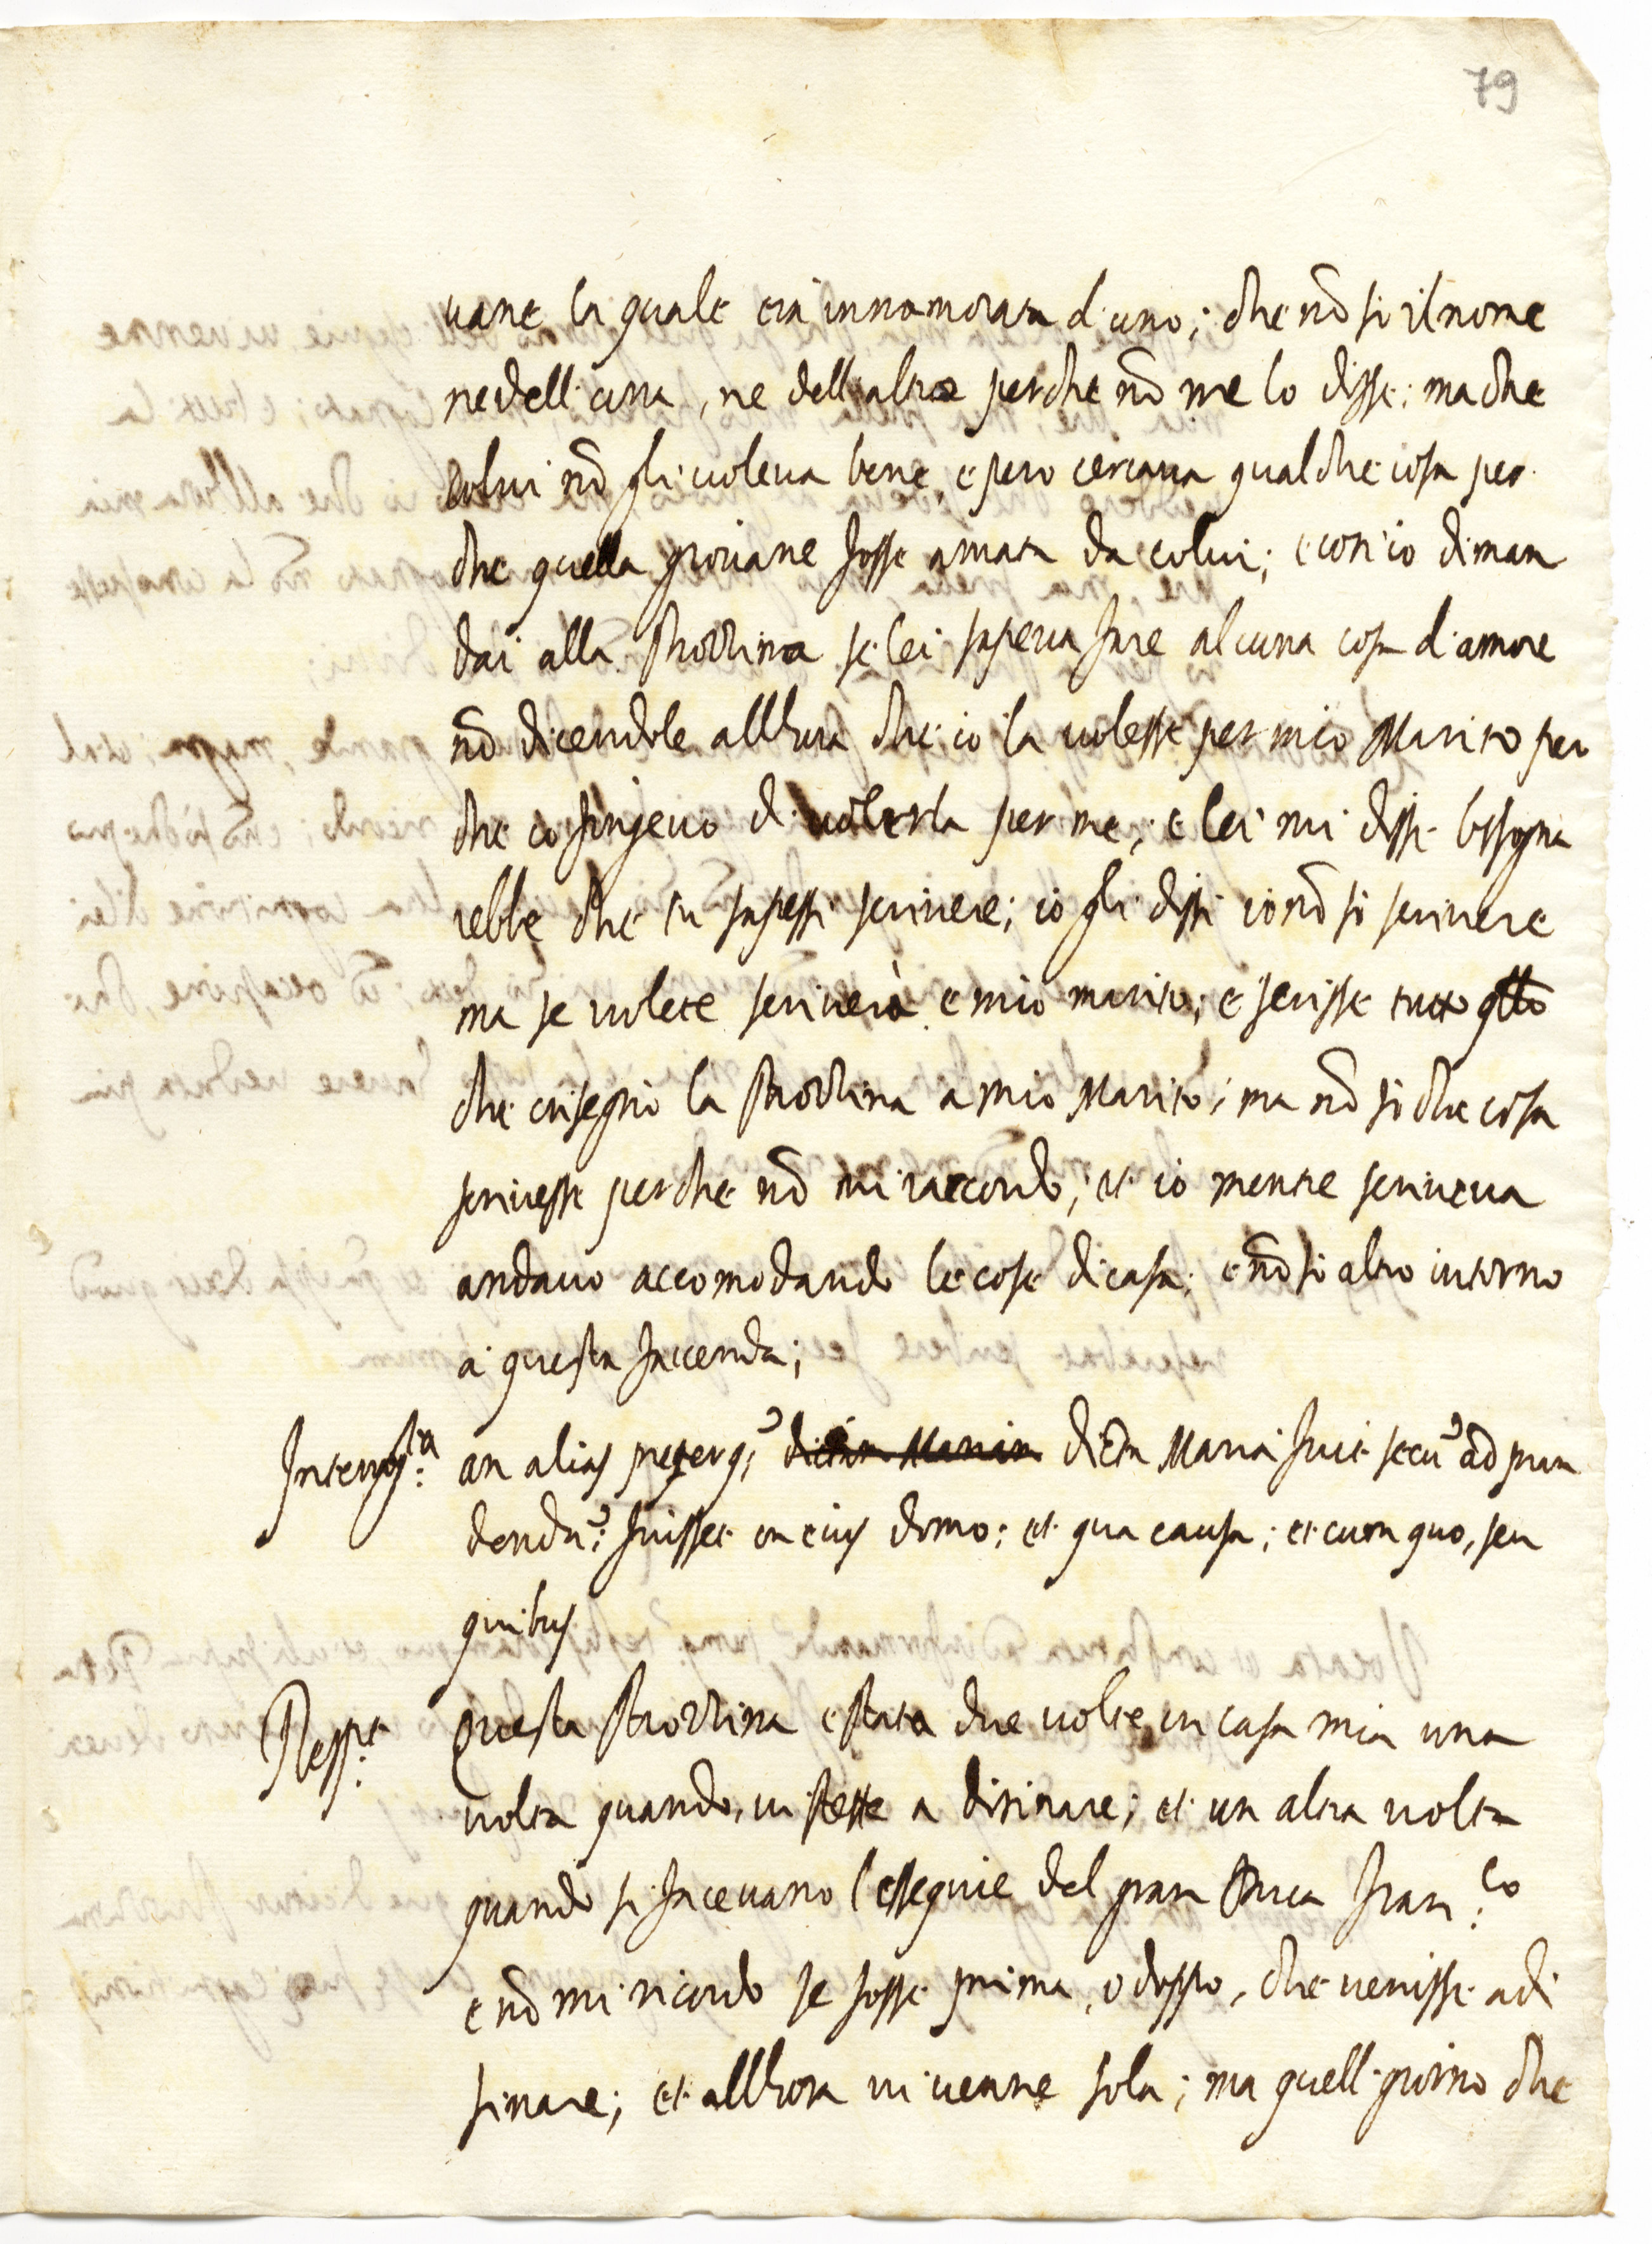 79
uane la quale era innamorata d'uno; che nō so il nome
ne dell'una, ne dell'altro perche nō me lo disse; ma che
colui nō gli uoleua bene, e pero cercaua qualche cosa per
che quella giouane fosse amata da colui; e cosi io diman
dai alla Strozzina se lei sapeua fare alcuna cosa d'amore
nō dicendole allhora che io la uolesse per mio Marito per
che io fingeuo di uolerla per me, e lei mi disse bisogna
rebbe che tu sapessi scriuere; io gli dissi io nō so scriuere
ma se uolete scriuerà e mio marito; e scrisse tutto qllo
che insegnò la Strozzina a mio Marito; ma nō so che cosa
scriuesse perche nō mi raccordo; et io mentre scriueua
andauo accomodando le cose di casa; e nō so altro intorno
a questa faccenda;
Interrog.ta an alias preterqȝ dicta Maria fuit secū ad pran
dendū: fuisset in eius domo; et qua causa; et cum quo, seu
quibus
Resp.t Questa Strozzina è stata due uolte in casa mia una
uolta quando, ui stette a disinare; et un altra uolta
quando si faceuano l'esseguie del gran Duca Fran.co
e nō mi ricordo se fosse prima, o doppo, che uenisse a di
sinare; et allhora ui uenne sola; ma quell giorno che